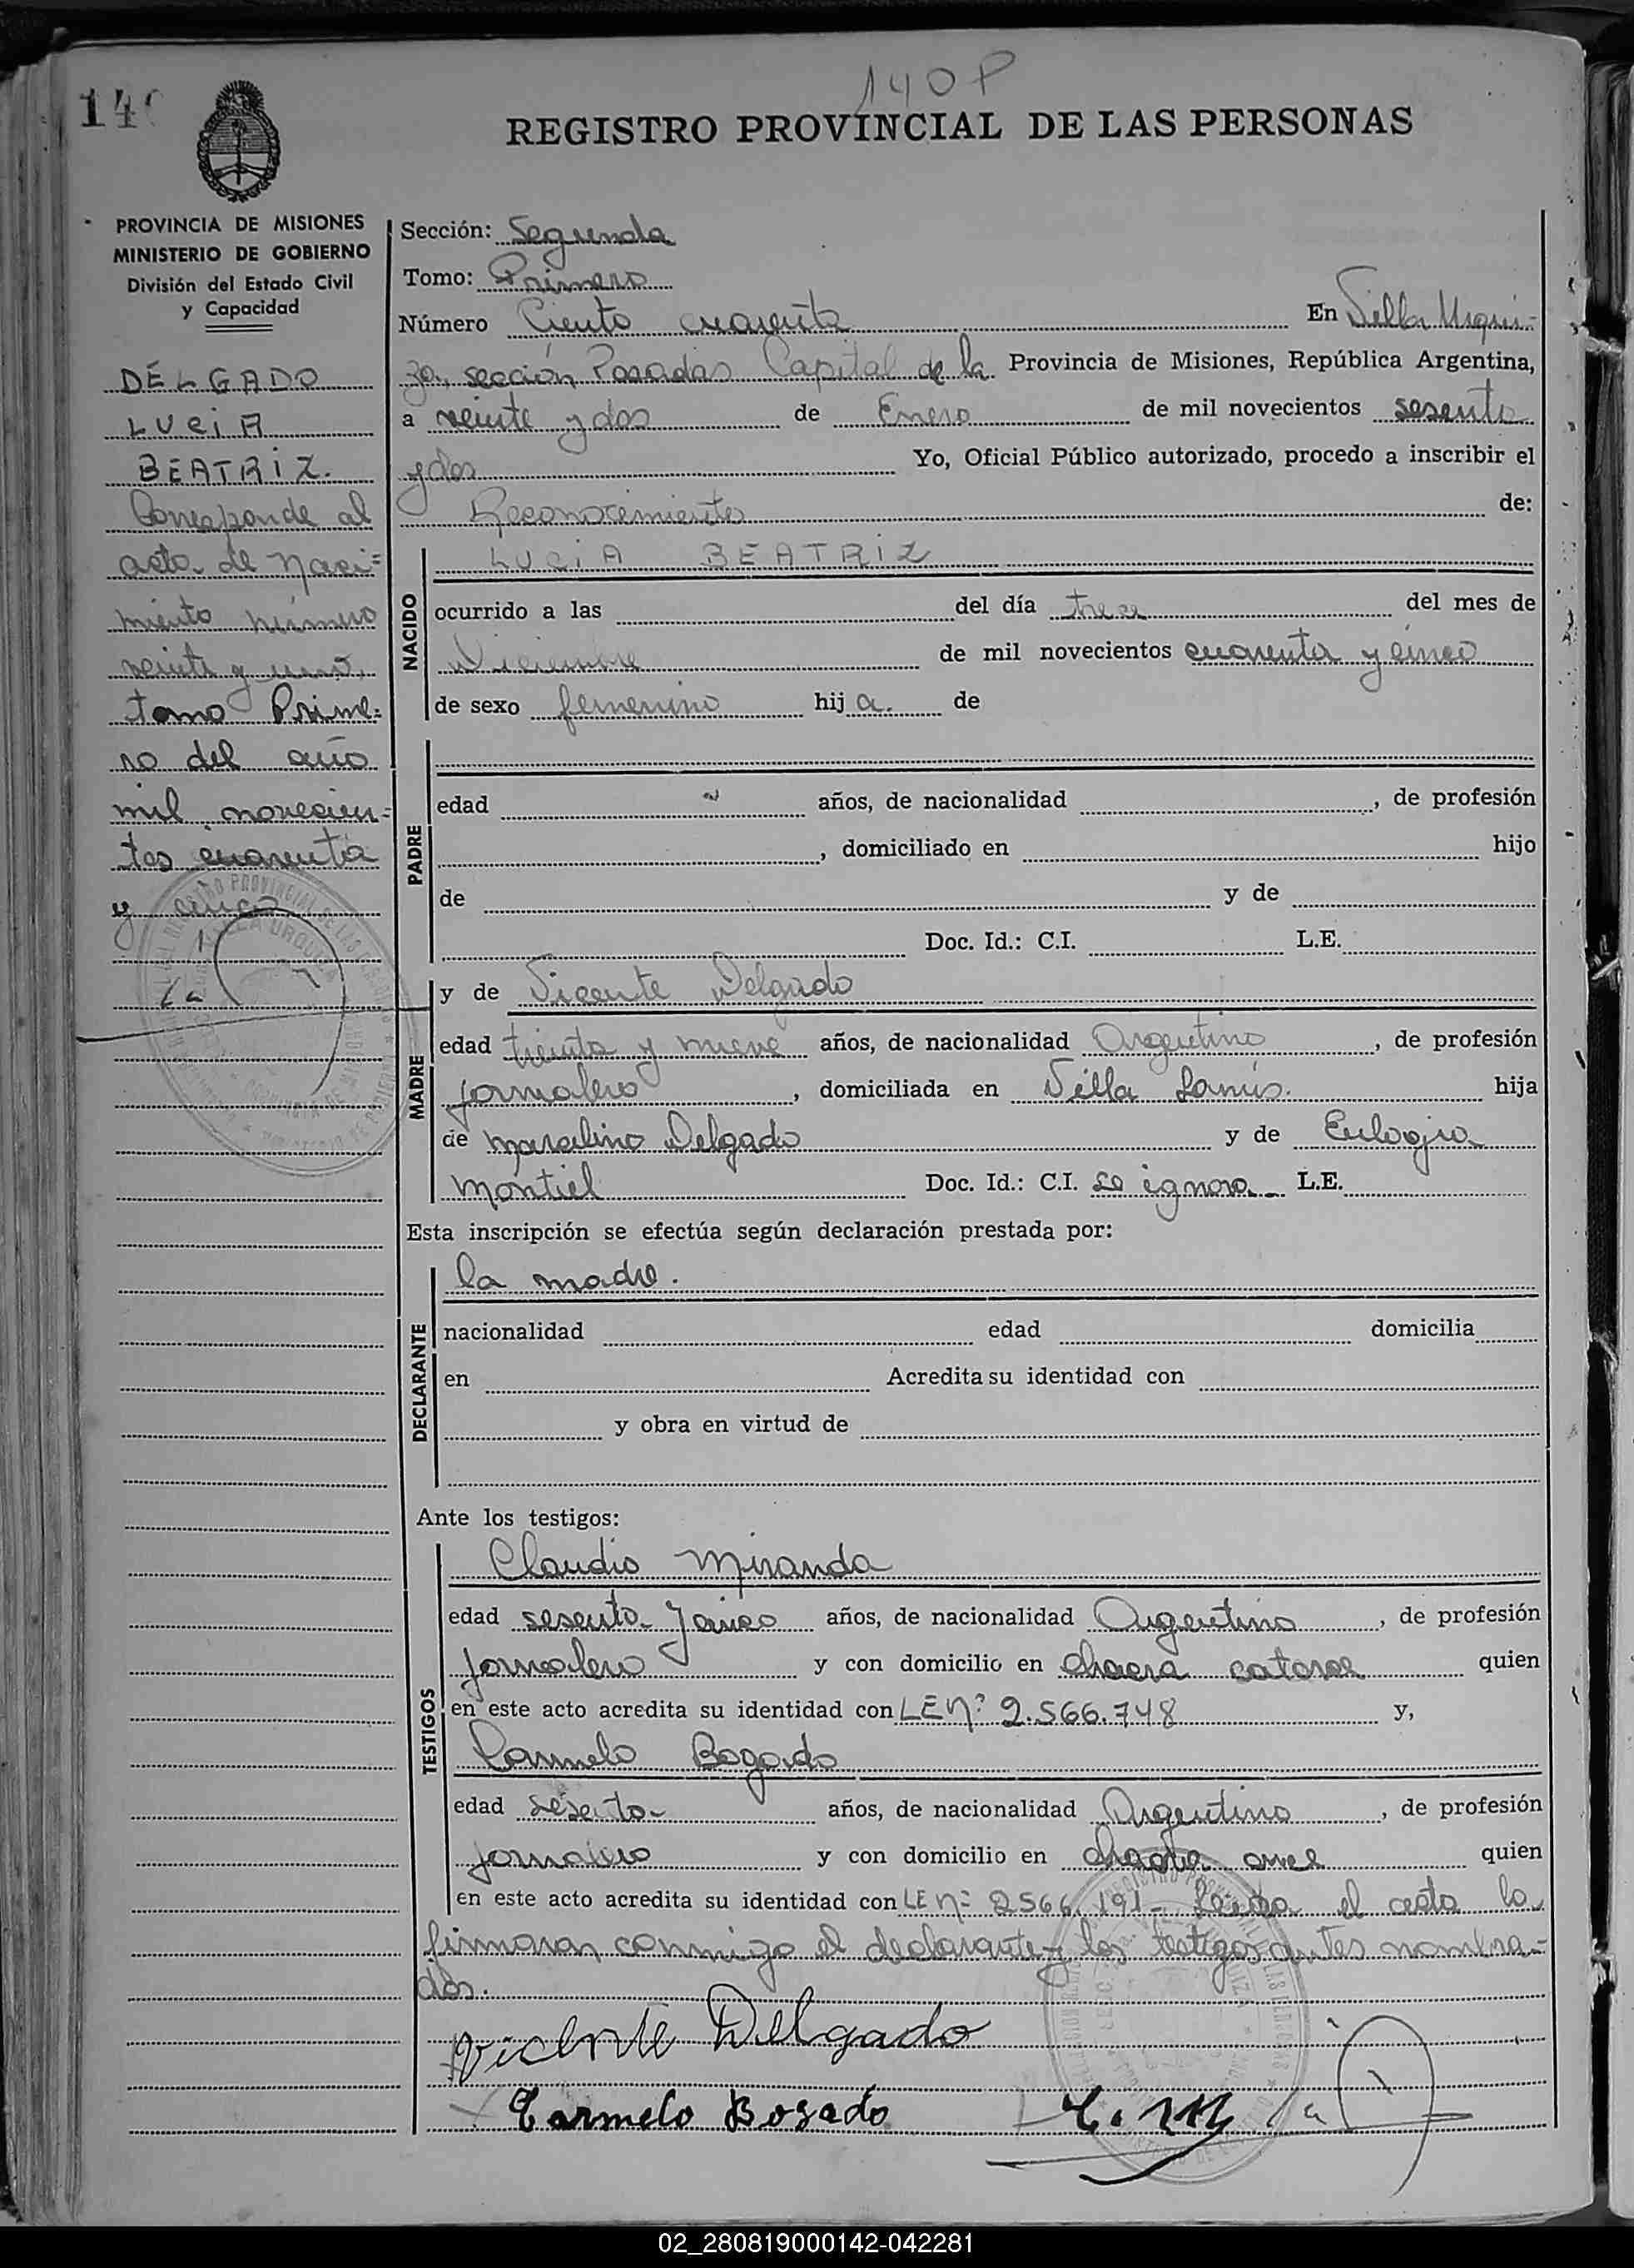 140P
140
REGISTRO PROVINCIAL DE LAS PERSONAS
PROVINCIA DE MISIONES
MINISTERIO DE GOBIERNO
División del Estado Civil
y Capacidad
DELGADO
LUCIA
BEATRIZ.
Corresponde al
acta de naci=
miento número
veinte y uno,
tomo Prime=
ro del año
mil novecien=
tos cuarenta
y cinco
Sección: Segunda
Tomo: Primero
Número Ciento cuarenta En Villa Urqui-
za, sección Posadas Capital de la Provincia de Misiones, República Argentina,
a veinte y dos de Enero de mil novecientos sesenta
y dos Yo, Oficial Público autorizado, procedo a inscribir el
Reconocimiento de:
NACIDO
LUCIA BEATRIZ
ocurrido a las del día trece del mes de
Diciembre de mil novecientos cuarenta y cinco
de sexo femenino hija de
PADRE
edad años, de nacionalidad , de profesión
, domiciliado en hijo
de y de
Doc. Id.: C.I. L.E.
MADRE
y de Vicente Delgado
edad treinta y nueve años, de nacionalidad Argentino , de profesión
jornalero , domiciliada en Villa Lanús. hija
de Marcelino Delgado y de Eulogia
Montiel Doc. Id.: C.I. se ignora L.E.
Esta inscripción se efectúa según declaración prestada por:
DECLARANTE
la madre.
nacionalidad edad domicilia
en Acredita su identidad con
y obra en virtud de
Ante los testigos:
TESTIGOS
Claudio Miranda
edad sesenta y cinco años, de nacionalidad Argentino , de profesión
jornalero y con domicilio en chacra catorce quien
en este acto acredita su identidad con LE Nº 2.566.748 y,
Carmelo Bogado
edad sesenta años, de nacionalidad Argentino , de profesión
jornalero y con domicilio en chacra once quien
en este acto acredita su identidad con LE Nº 2566.191- Leída el acta la
firmaron conmigo el declarante y los testigos antes nombra-
dos.
Vicente Delgado
Carmelo Bogado C. M
02_280819000142-042281